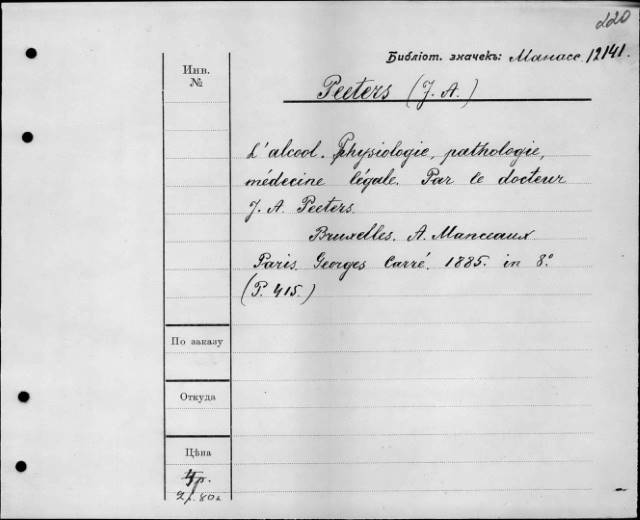 220
Библіот. значекъ: Манасс. 12141.
Инв.
№
Peeters (J. A.)
L'alcool. Physiologie, pathologie,
médecine légale. Par le docteur
J. A. Peeters.
Bruxelles. A. Manceaux.
Paris. Georges Carré. 1885. in 8.°
(P. 415.)
По заказу
Откуда
Цѣна
4р.
2р. 80к